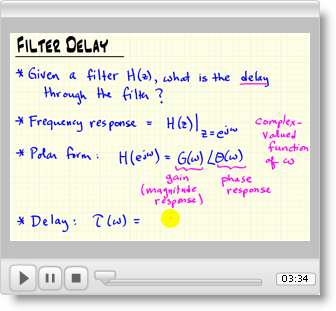 FILTER DELAY
* Given a filter H(z), what is the delay
through the filter?
* Frequency response = H(z)|z=e^jω
complex-
valued
function
of ω
* Polar form: H(e^jω) = G(ω) ∠Θ(ω)
gain
(magnitude
response)
phase
response
* Delay: τ(ω) =
03:34